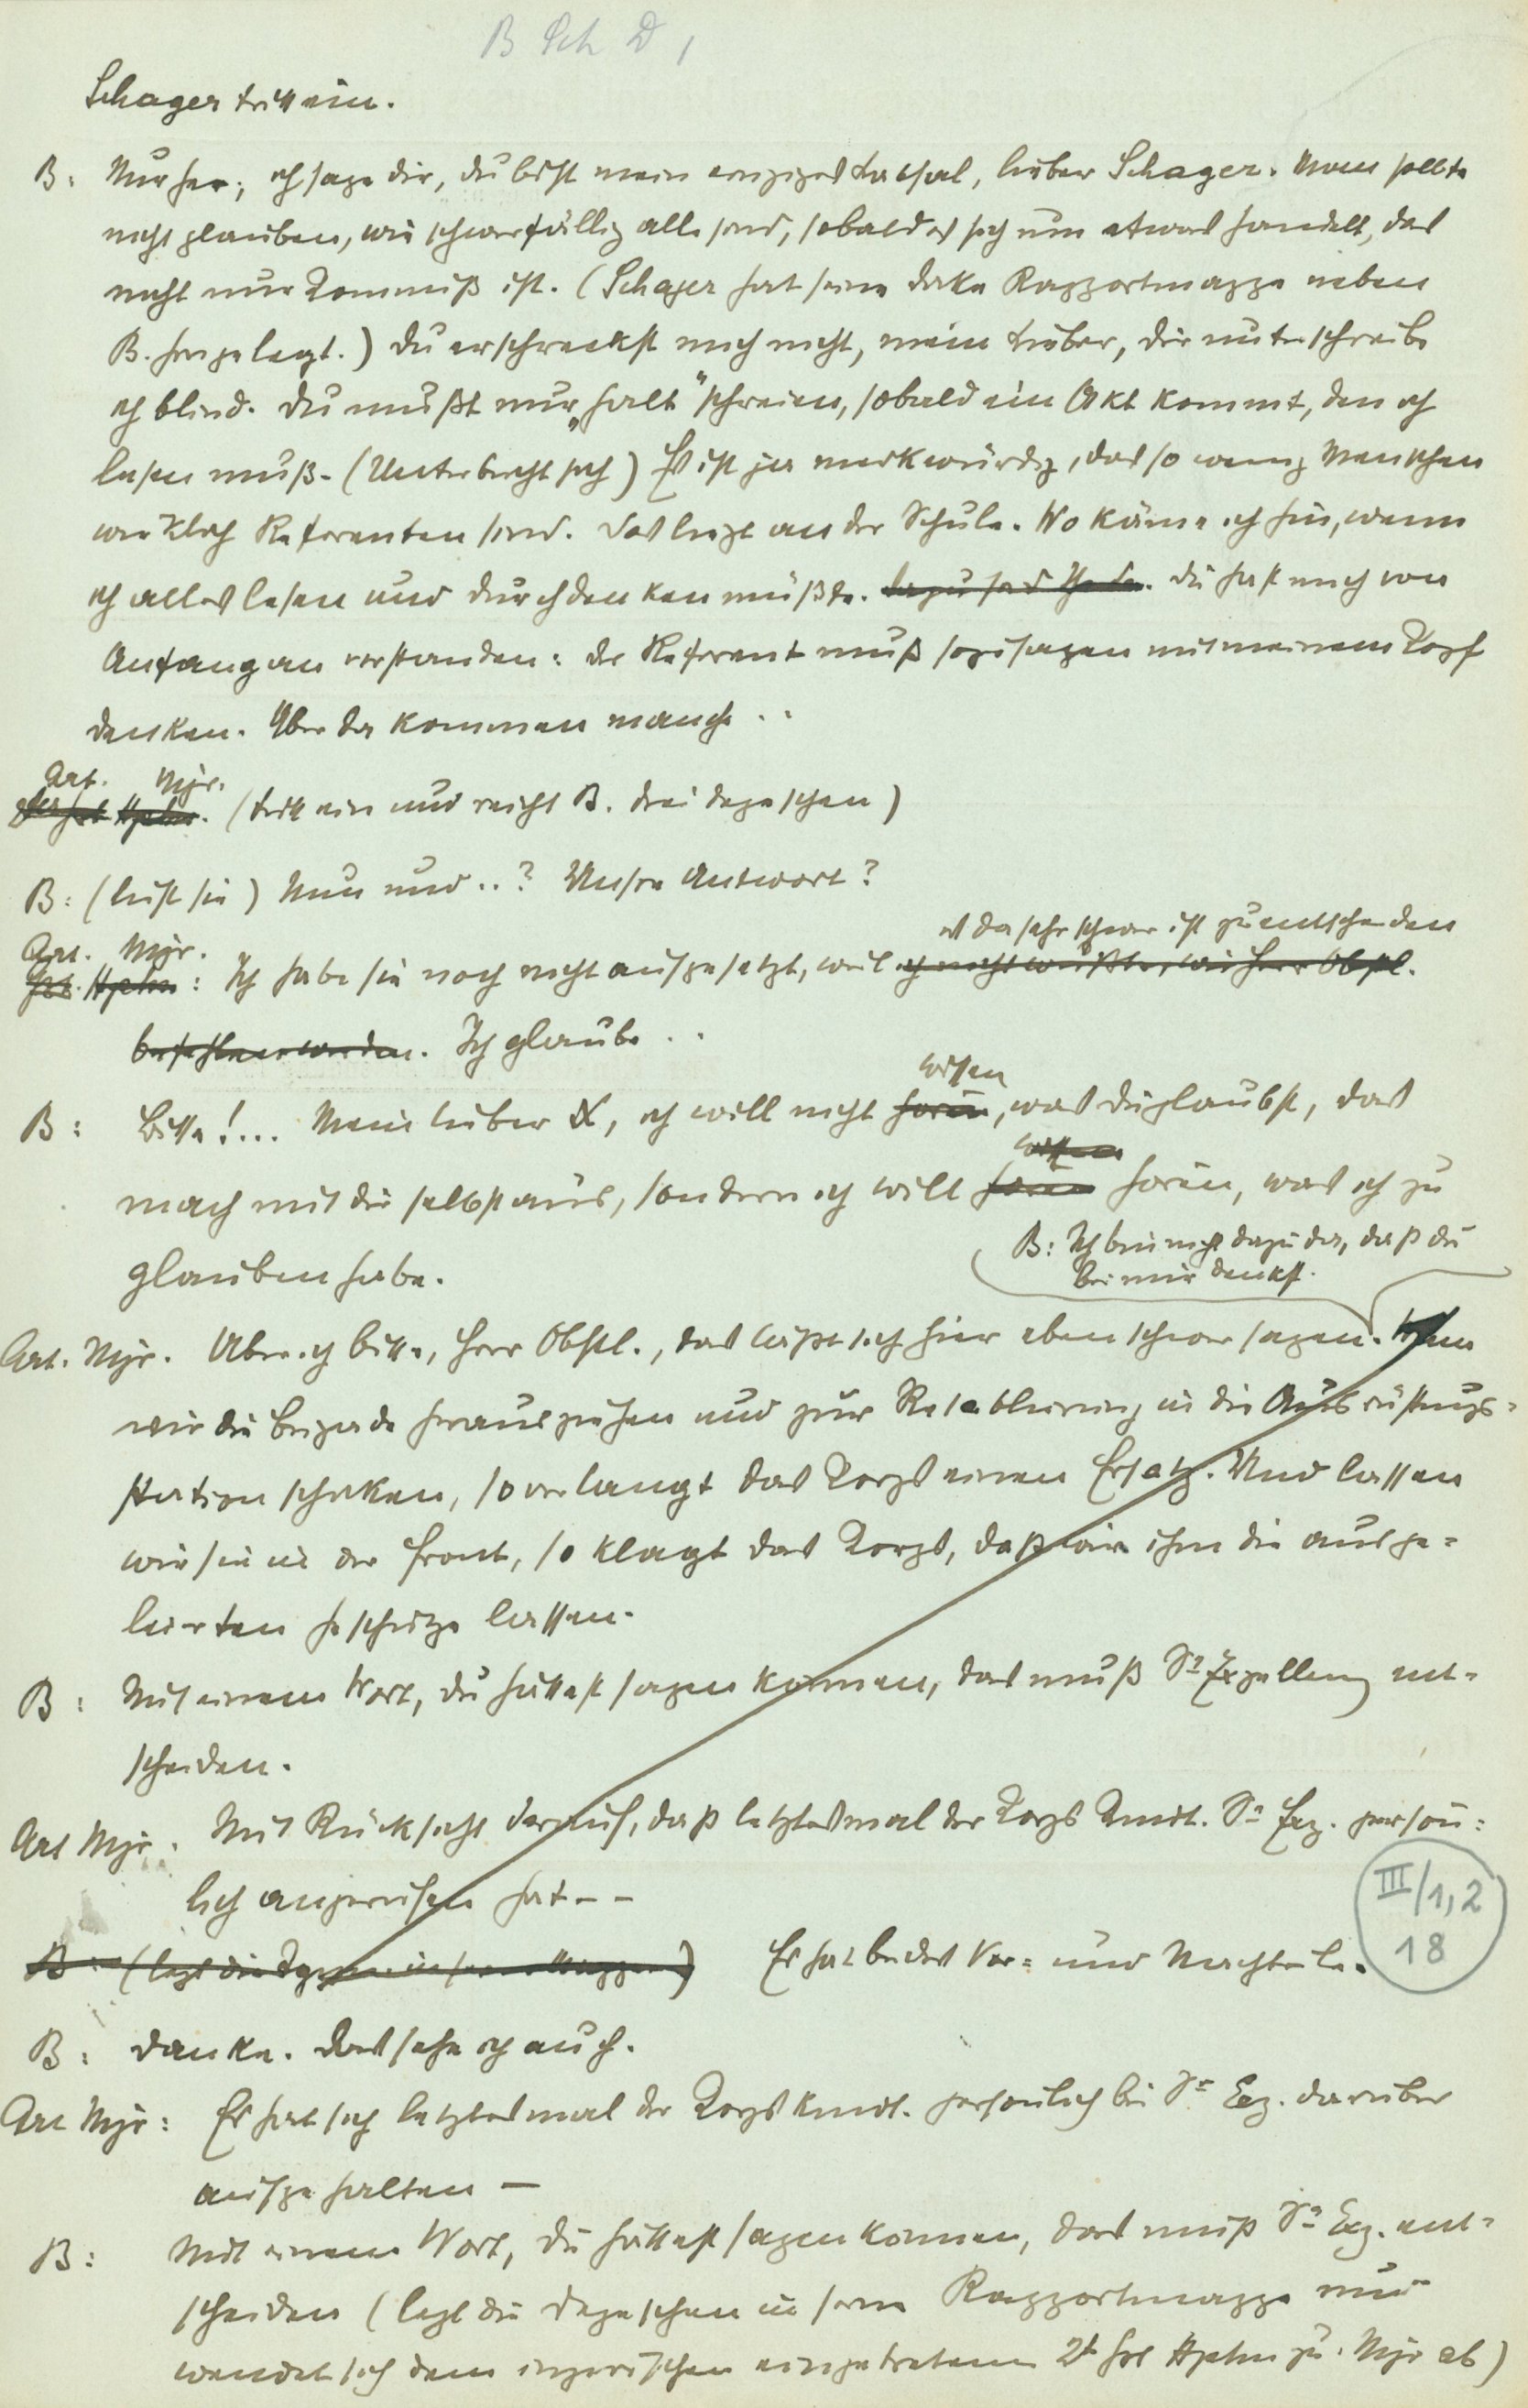 B Sch D 1
Schager tritt ein.
B: Nur her; ich sage dir, du bist mein einziges Labsal, lieber Schager. Man sollte
nicht glauben, wie schwerfällig alle sind, sobald es sich um etwas handelt, das
nicht nur Kommiß ist. (Schager hat seine dicke Rapportmappe neben
B. hingelegt.) Du erschreckst mich nicht, mein Lieber, dir unterschreibe
ich blind. Du mußt nur „halt“ schreien, sobald ein Akt kommt, den ich
lesen muß. (Unterbricht sich) Es ist ja merkwürdig, das so wenig Menschen
wirklich Referenten sind. Das liegt an der Schule. Wo käme ich hin, wenn
ich alles lesen und durchdenken müßte. dazu sind Du hast mich von
Anfang an verstanden: der Referent muß sozusagen mit meinem Kopf
denken. Aber da kommen manche ..
Art. Mjr.
Hptm. (tritt ein und reicht B. drei Depeschen)
B: (liest sie) Nun und ..? Unsre Antwort?
es da sehr schwer ist zu entscheiden
Art. Mjr.
Hptm: Ich habe sie noch nicht aufgesetzt, weil ich nicht wußte, wie Herr Obstl.
befehlen werden. Ich glaube ..
wissen
B: Bitte!... Mein lieber X, ich will nicht hören, was du glaubst, das
wissen
mach mit dir selbst aus, sondern ich will hören hören, was ich zu
glauben habe.
B: Ich bin nicht dazu da, daß du
bei mir denkst.
Art. Mjr. Aber ich bitte, Herr Obstl., das läßt sich hier eben schwer sagen. Wenn
wir die Brigade herausziehen und zur Retablierung in die Ausrüstungs-
station schicken, so verlangt das Korps einen Ersatz. Und lassen
wir sie in der Front, so klagt das Korps, daß wir ihm die ausge-
leierten Geschütze lassen.
B: Mit einem Wort, du hättest sagen können, das muß Se Exzellenz ent-
scheiden.
Art Mjr. Mit Rücksicht darauf, daß letztesmal der Korps Kmdt. Sr Exz. persön-
lich angewiesen hat - -
III/1,2
18
B: (legt die in seine Mappe) Es hat beides Vor- und Nachteile.
B: Danke. Das sehe ich auch.
Art Mjr: Es hat sich letztesmal der Korpskmdt. persönlich bei Sr Exz. darüber
aufgehalten —
B: Mit einem Wort, du hättest sagen können, das muß Se Exz. ent-
scheiden (legt die Depeschen in seine Rapportmappe und
wendet sich dem inzwischen eingetretenen Hptm zu. Mjr ab)